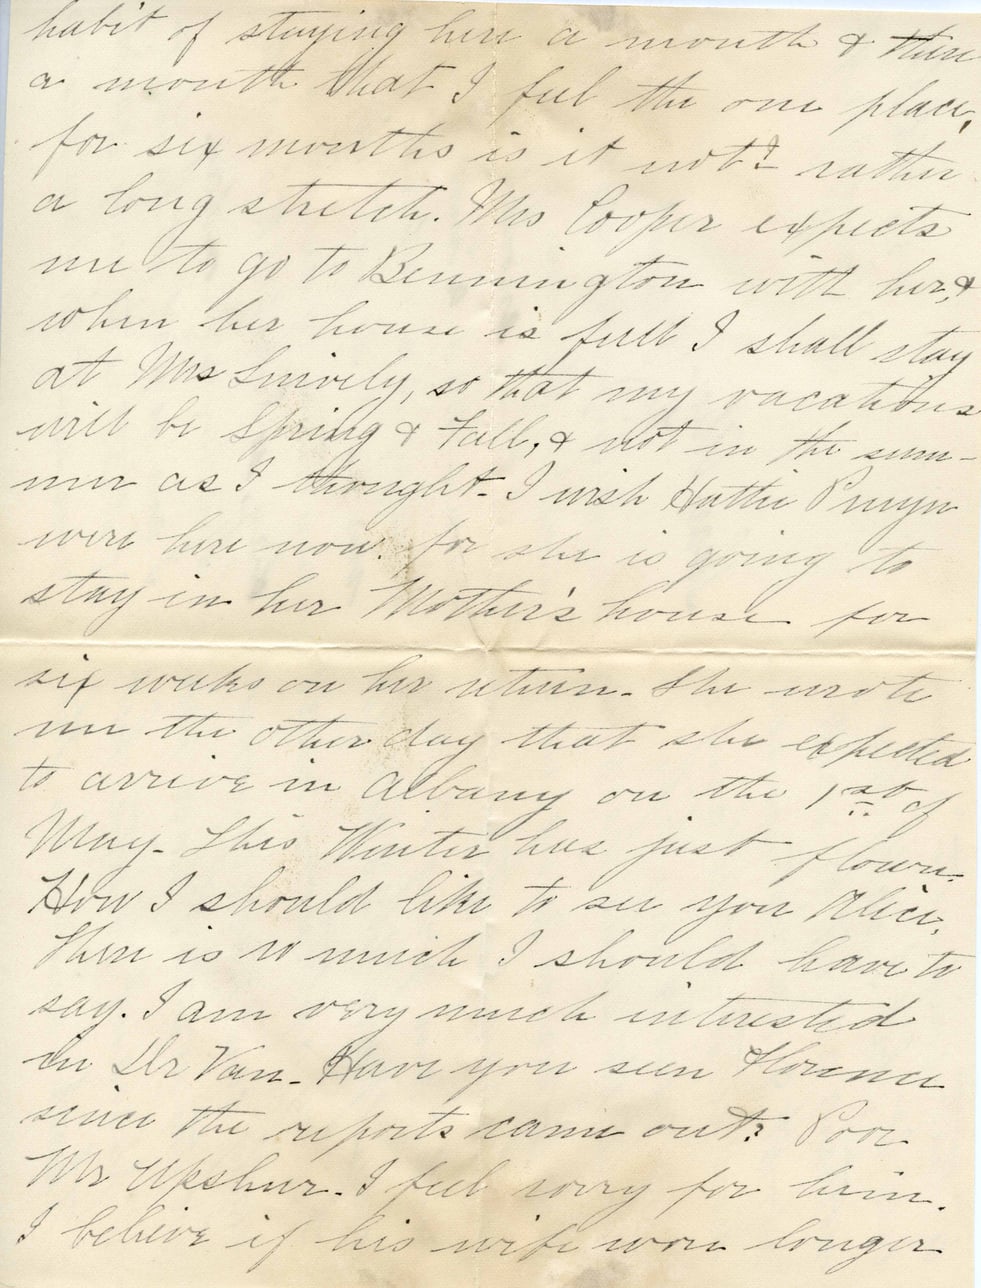 habit of staying here a month & there
a month that I feel the one place,
for six months is it not? rather
a long stretch. Mrs Cooper expects
me to go to Bennington with her, &
when her house is full I shall stay
at Mrs Snively, so that my vacations
will be Spring & Fall, & not in the sum-
mer as I thought. I wish Hattie Pruyn
were here now. for she is going to
stay in her Mother's house for
six weeks on her return. She wrote
me the other day that she expected
to arrive in Albany on the 1st of
May. This Winter has just flown.
How I should like to see you Alice,
there is so much I should have to
say. I am very much interested
in Dr Van. Have you seen Florence
since the reports came out? Poor
Mr Upshur. I feel sorry for him.
I believe if his wife wore longer